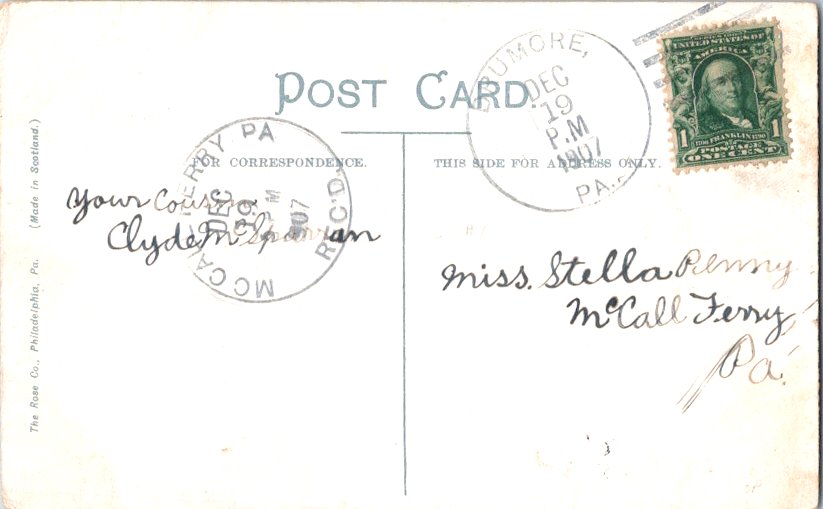 POST CARD.
FOR CORRESPONDENCE.
THIS SIDE FOR ADDRESS ONLY.
Your Cousin
Clyde
Miss. Stella Penny
McCall Ferry
Pa.
DRUMORE,
DEC
19
P.M
1907
PA.
MCCALL FERRY PA
DEC
19
PM
1907
REC'D.
SERIES 1902
UNITED STATES OF
AMERICA
1
1706 FRANKLIN 1790
1
POSTAGE
ONE CENT
The Rose Co., Philadelphia, Pa. (Made in Scotland.)